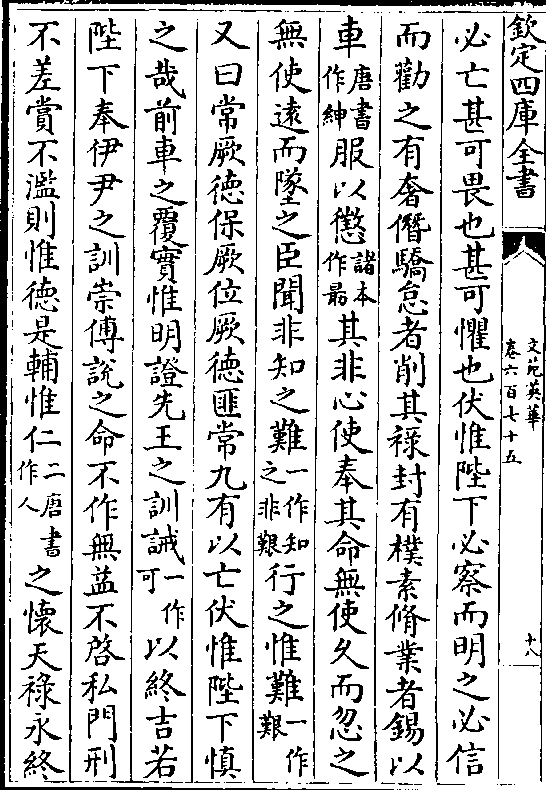 欽定四庫全書
文苑英華
卷六百七十五
十八
必亡甚可畏也甚可懼也伏惟陛下必察而明之必信
而勸之有奢僭驕怠者削其祿封有樸素脩業者錫以
車唐書作紳服以懲諸本作最其非心使奉其命無使久而忽之
無使遠而墜之臣聞非知之難一作知之非艱行之惟難一作艱
又曰常厥德保厥位厥德匪常九有以亡伏惟陛下慎
之哉前車之覆實惟明證先王之訓誡一作可以終吉若
陛下奉伊尹之訓崇傅說之命不作無益不啓私門刑
不差賞不濫則惟德是輔惟仁二唐書作人之懷天祿永終